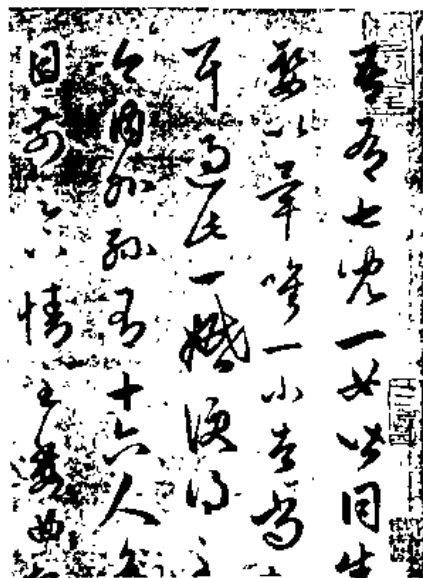 吾有七兒一女皆同生
娶以畢唯一小者尚
耳過此一婚便得至
今內外孫有十六人足
目前足下情至委曲